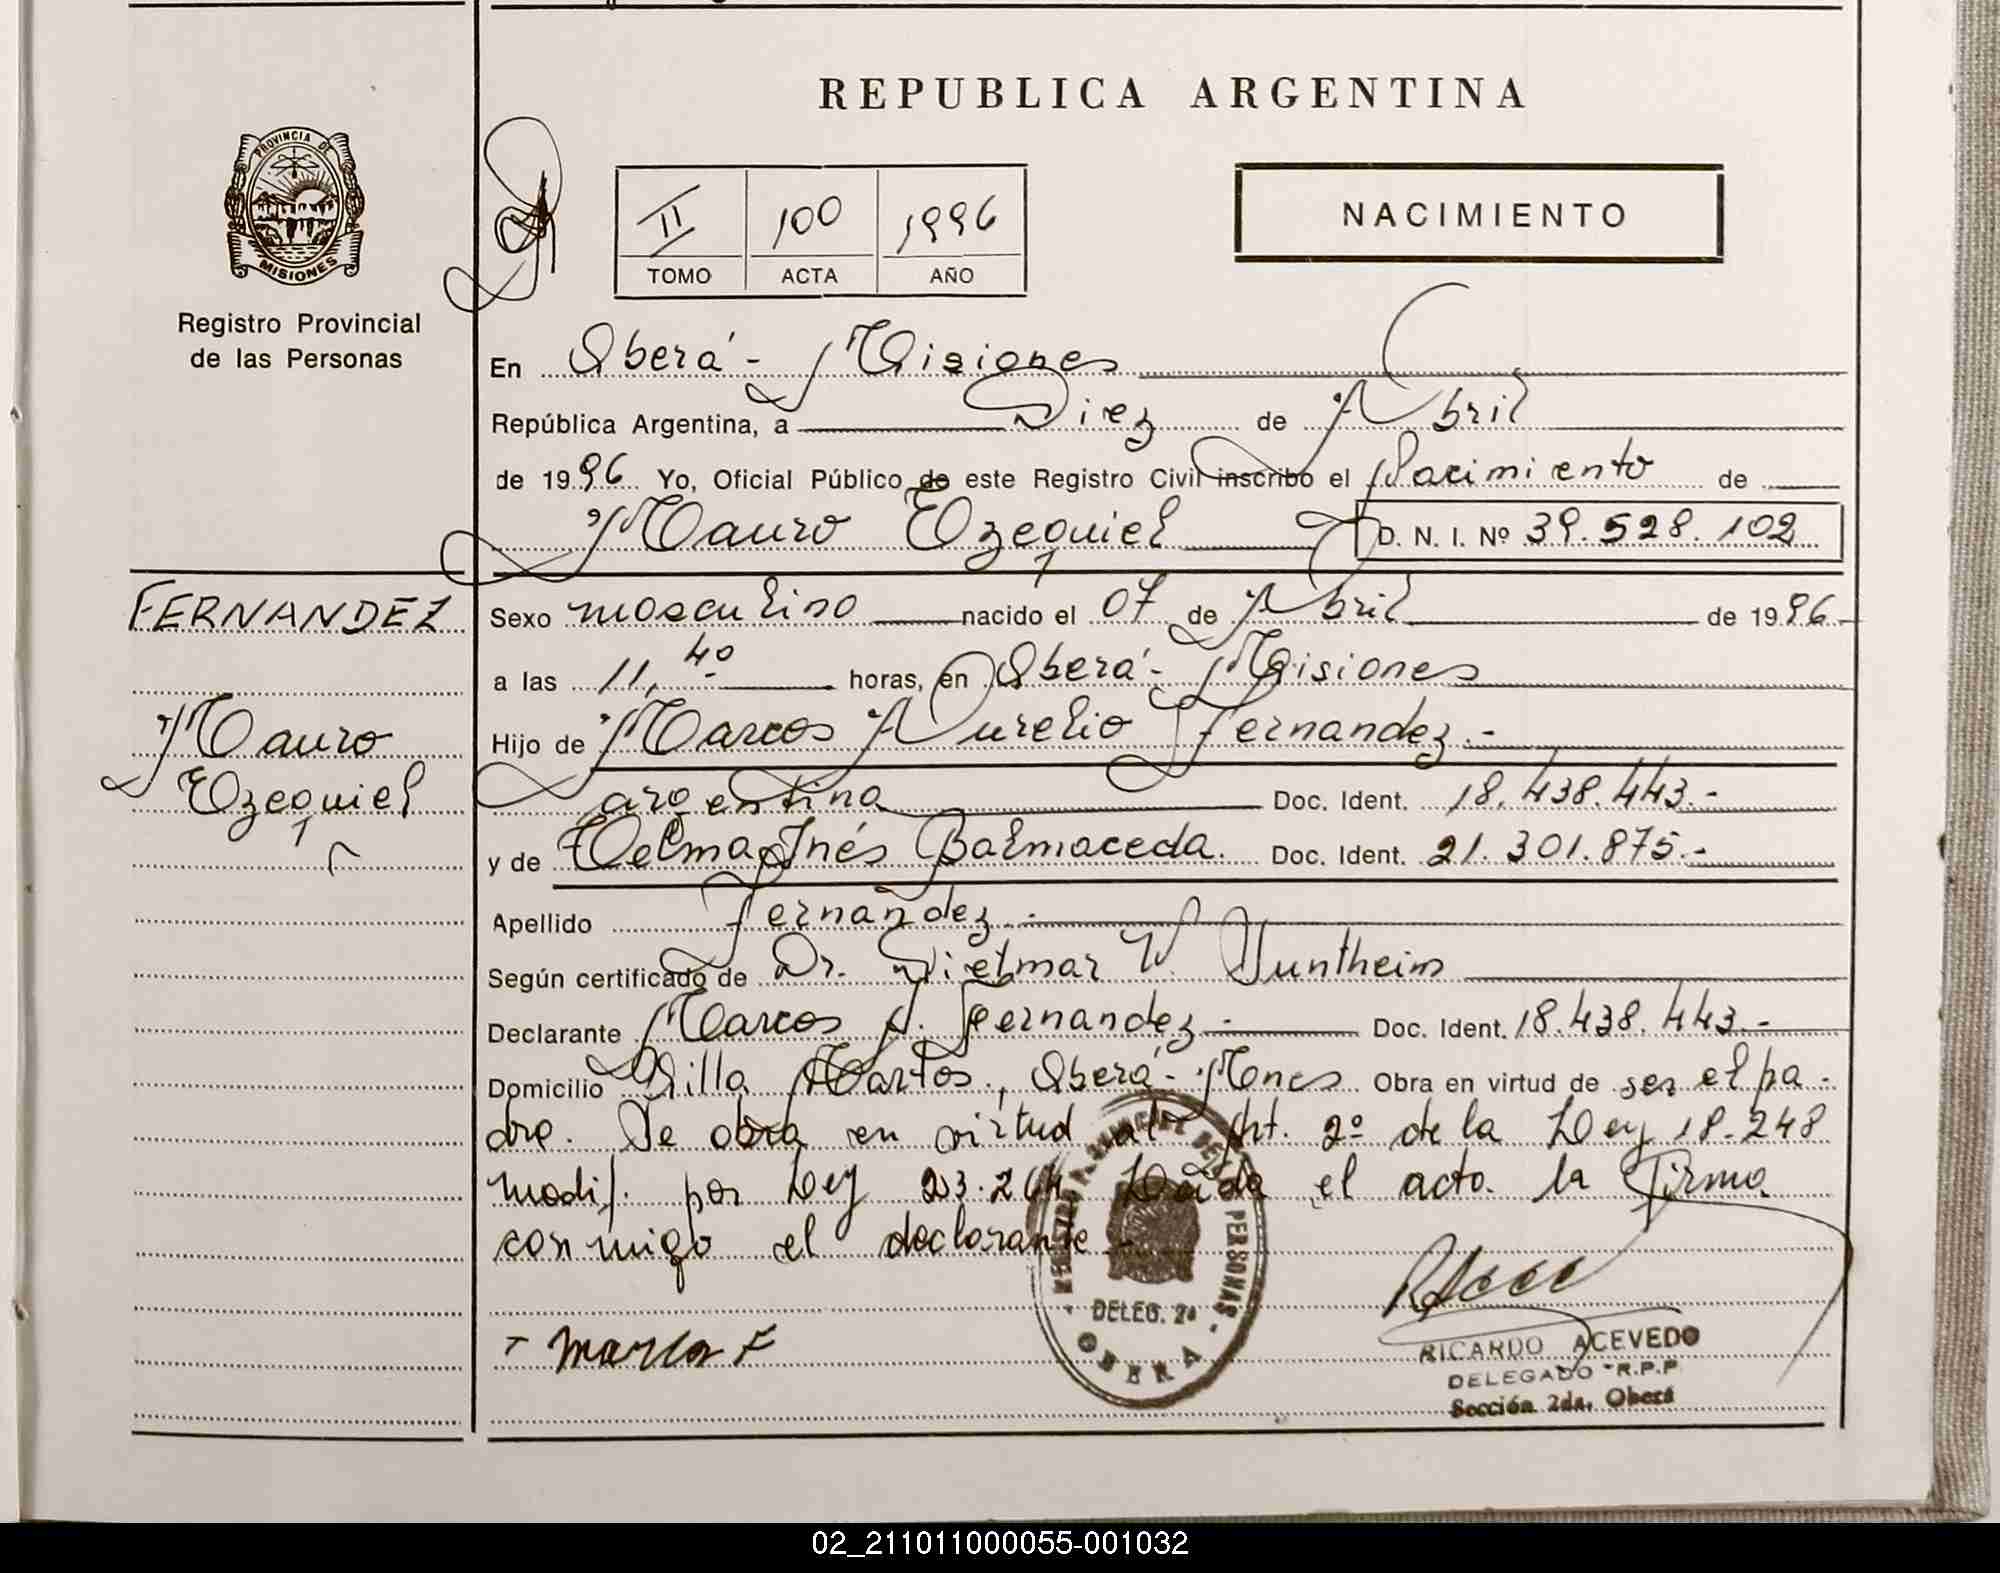 REPUBLICA ARGENTINA
PROVINCIA DE
MISIONES
Registro Provincial
de las Personas
II 100 1996
TOMO ACTA AÑO
NACIMIENTO
En Oberá - Misiones
República Argentina, a Diez de Abril
de 1996 Yo, Oficial Público de este Registro Civil inscribo el Nacimiento de
Mauro Ezequiel D. N. I. Nº 39.528.102
FERNANDEZ
Mauro
Ezequiel
Sexo masculino nacido el 07 de Abril de 1996.-
a las 11,40 horas, en Oberá - Misiones
Hijo de Marcos Aurelio Fernandez.-
argentino Doc. Ident. 18.438.443.-
y de Telma Inés Balmaceda. Doc. Ident. 21.301.875.-
Apellido Fernandez.-
Según certificado de Dr. Dietmar W. Juntheim
Declarante Marcos A. Fernandez.- Doc. Ident. 18.438.443.-
Domicilio Villa Martos, Oberá - Mnes Obra en virtud de ser el pa-
dre. Se obra en virtud al Art. 2º de la Ley 18.248
modif. por Ley 23.264 Leída el acto. la firma
conmigo el declarante.-
PERSONAS
DELEG. 2ª
OBERA
RICARDO ACEVEDO
DELEGADO R.P.P
Sección 2da. Oberá
02_211011000055-001032